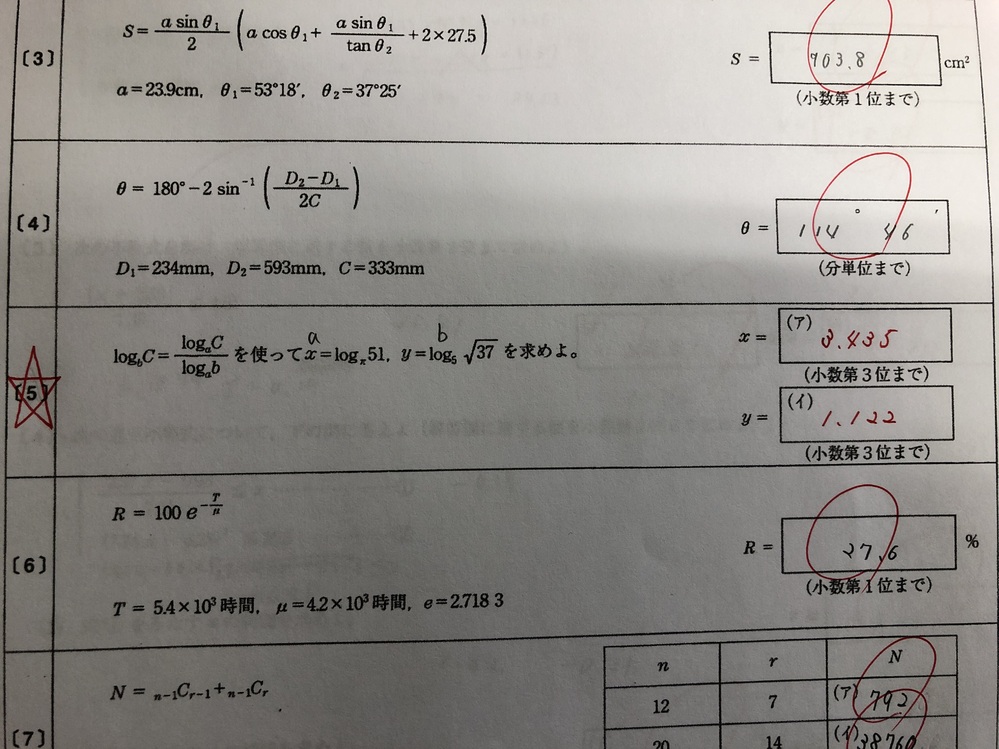 〔3〕
S = a sin θ₁ / 2 ( a cos θ₁ + a sin θ₁ / tan θ₂ + 2×27.5 )
a=23.9cm, θ₁=53°18′, θ₂=37°25′
S = 903.8 cm²
(小数第1位まで)
〔4〕
θ = 180° − 2 sin⁻¹ ( D₂−D₁ / 2C )
D₁=234mm, D₂=593mm, C=333mm
θ = 114° 46′
(分単位まで)
〔5〕
a b
log_b C = log_a C / log_a b を使って x=log_π 51, y=log₅ √37 を求めよ。
x = (ア) 3.435
(小数第3位まで)
y = (イ) 1.122
(小数第3位まで)
〔6〕
R = 100 e^(−T/μ)
T = 5.4×10³時間, μ=4.2×10³時間, e=2.718 3
R = 27.6 %
(小数第1位まで)
〔7〕
N = ₙ₋₁Cᵣ₋₁+ₙ₋₁Cᵣ
n r N
12 7 (ア) 792
20 14 (イ) 38760